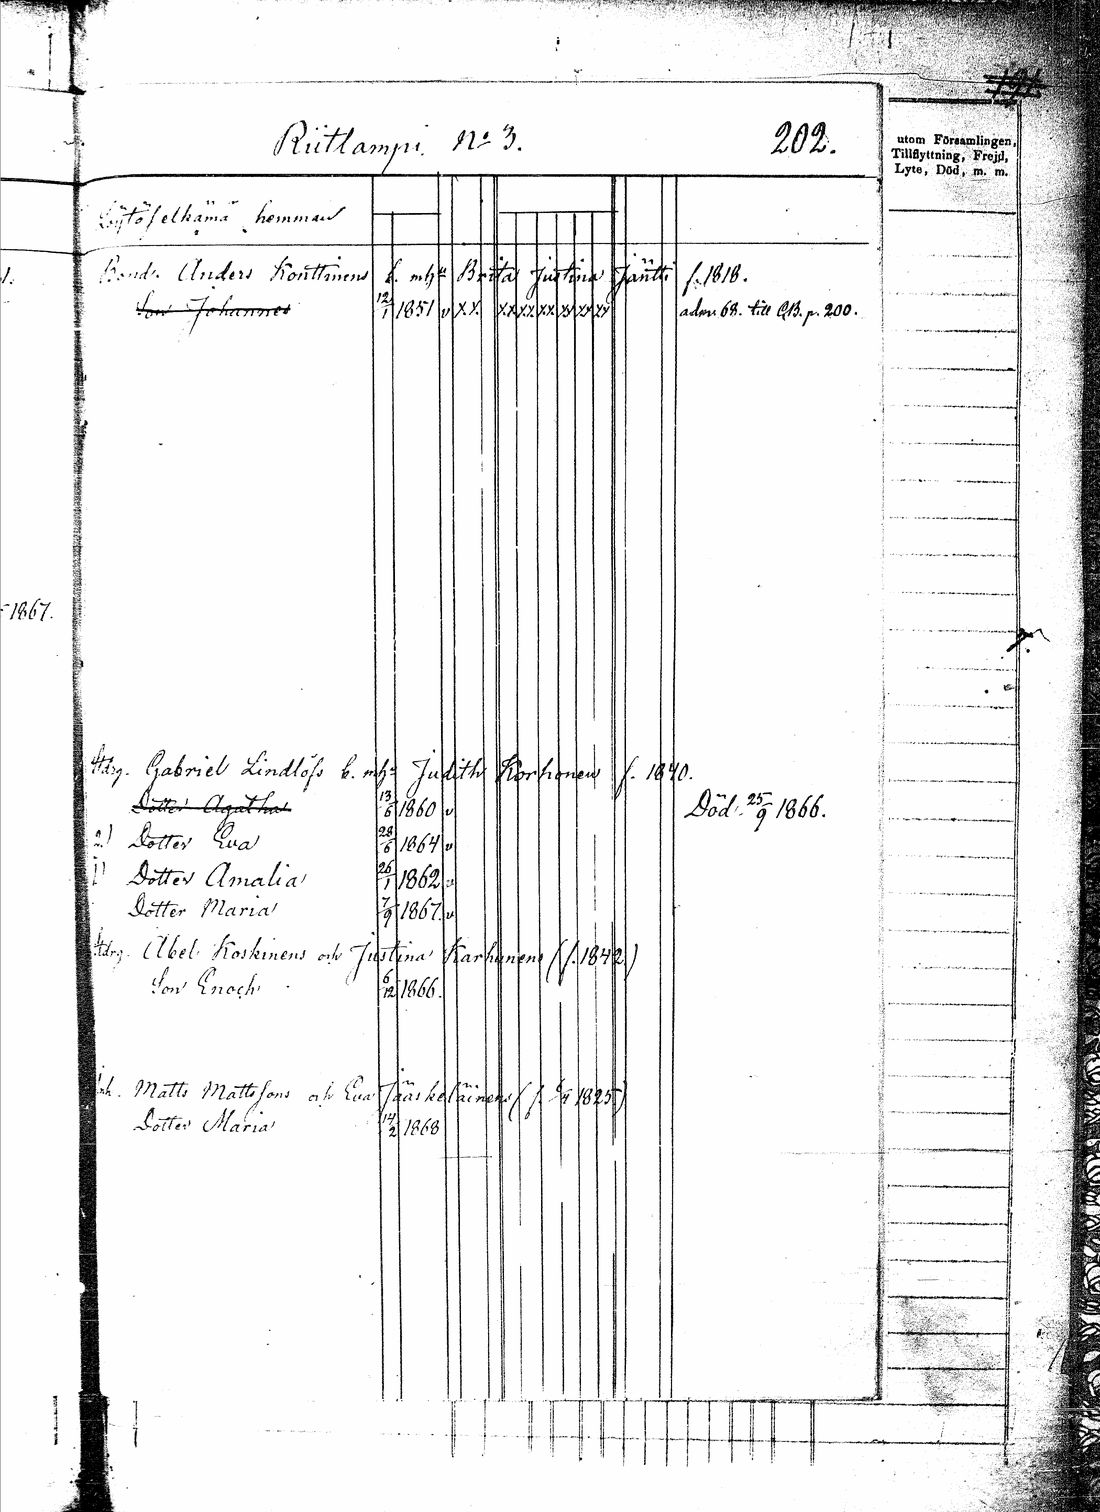 191.
Riitlampi No 3. 202.
utom Församlingen,
Tillflyttning, Frejd,
Lyte, Död, m. m.
hemman
Bond. Anders Konttinens E. mhu Brita Justina Jäntti f. 1818.
Son Johannes 12/1 1851 v XX XX XX XX XX XX XX adm. 68. till CB. p. 200.
1867.
Hdrg. Gabriel Lindlöfs E. mhu Judith Korhonen f. 1840.
Dotter Agatha 13/6 1860 v Död 25/9 1866.
2) Dotter Eva 28/6 1864 v
1) Dotter Amalia 26/1 1862 v
Dotter Maria 7/9 1867. v
Hdrg. Abel Koskinens och Justina Karhunens (f. 1842)
Son Enoch 6/12 1866.
Inh. Matts Mattssons och Eva Jääskeläinens (f. 1825)
Dotter Maria 14/2 1868